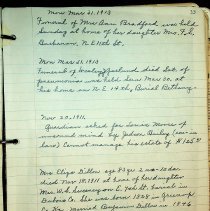 33
Mon Mar 31, 1913
Funeral of Mrs Ann Bradford was held
Sunday at home of her daughter Mrs. F. C.
N. E 14th St.
Mon Mar 31, 1913
Funeral of Wesley held Sat. of
pneumonia was held Sun Mar 30 at
his home on N. E 14th, Burial Bethany.
Nov 20, 1911
Guardian asked for James Moore of
unsound mind by John Bailey (son in
law) Cannot manage his estate of $1250
Mrs Eliza Dillon age 83 yr 2 mo 10 da
died Nov 18, 1911 at home of her daughter
Mrs W. S. on E. 2nd St. burial in
Dubois Co. She was born 1828 in
Co. Ky. Married Benjamin Dillon in 1846